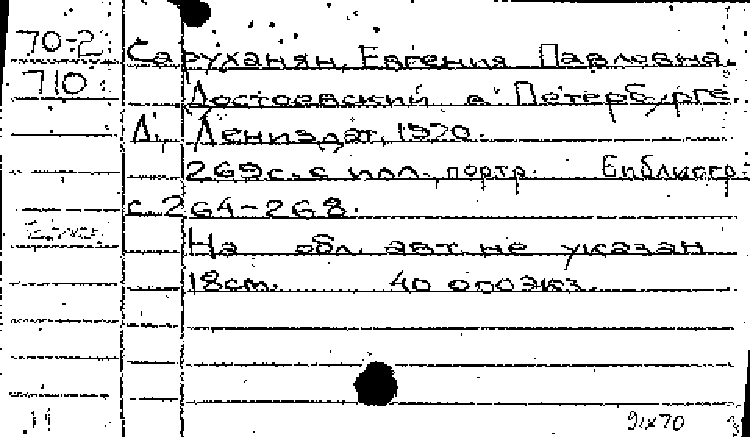 70-2 Саруханян, Евгения Павловна.
710 Достоевский в Петербурге.
Л., Лениздат, 1970.
269с. с илл., портр. Библиогр.:
с. 264-268.
На обл. авт. не указан
18см. 40 000экз.
9/IX70